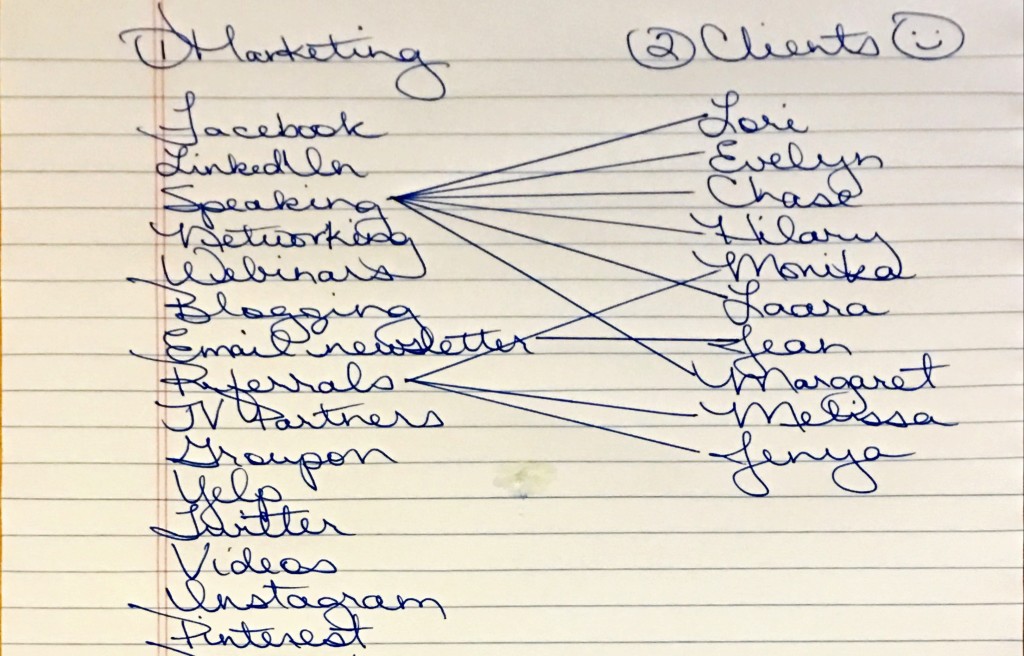 ① Marketing
② Clients
Facebook
LinkedIn
Speaking
Networking
Webinars
Blogging
Email newsletter
Referrals
JV Partners
Groupon
Yelp
Twitter
Videos
Instagram
Pinterest
Lori
Evelyn
Chase
Hilary
Monika
Laara
Jean
Margaret
Melissa
Jenya